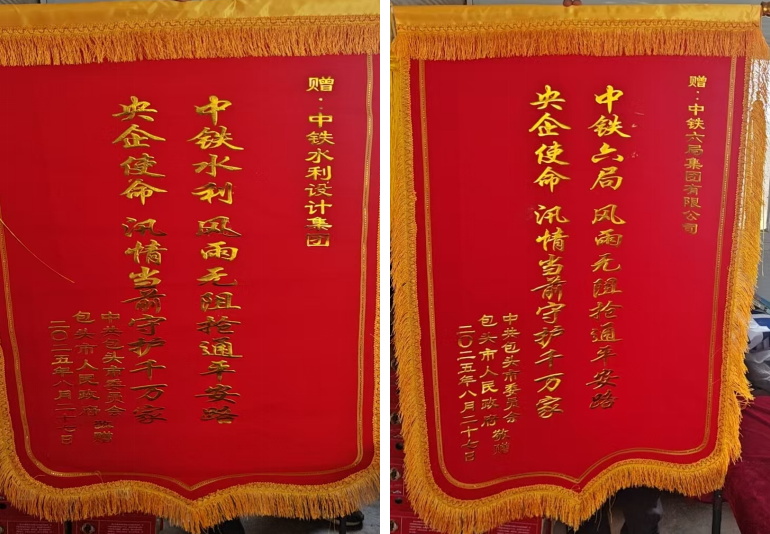 赠：中铁水利设计集团
中铁水利 风雨无阻抢通平安路
央企使命 汛情当前守护千万家
中共包头市委员会
包头市人民政府 敬赠
二〇二五年八月二十七日
赠：中铁六局集团有限公司
中铁六局 风雨无阻抢通平安路
央企使命 汛情当前守护千万家
中共包头市委员会
包头市人民政府 敬赠
二〇二五年八月二十七日